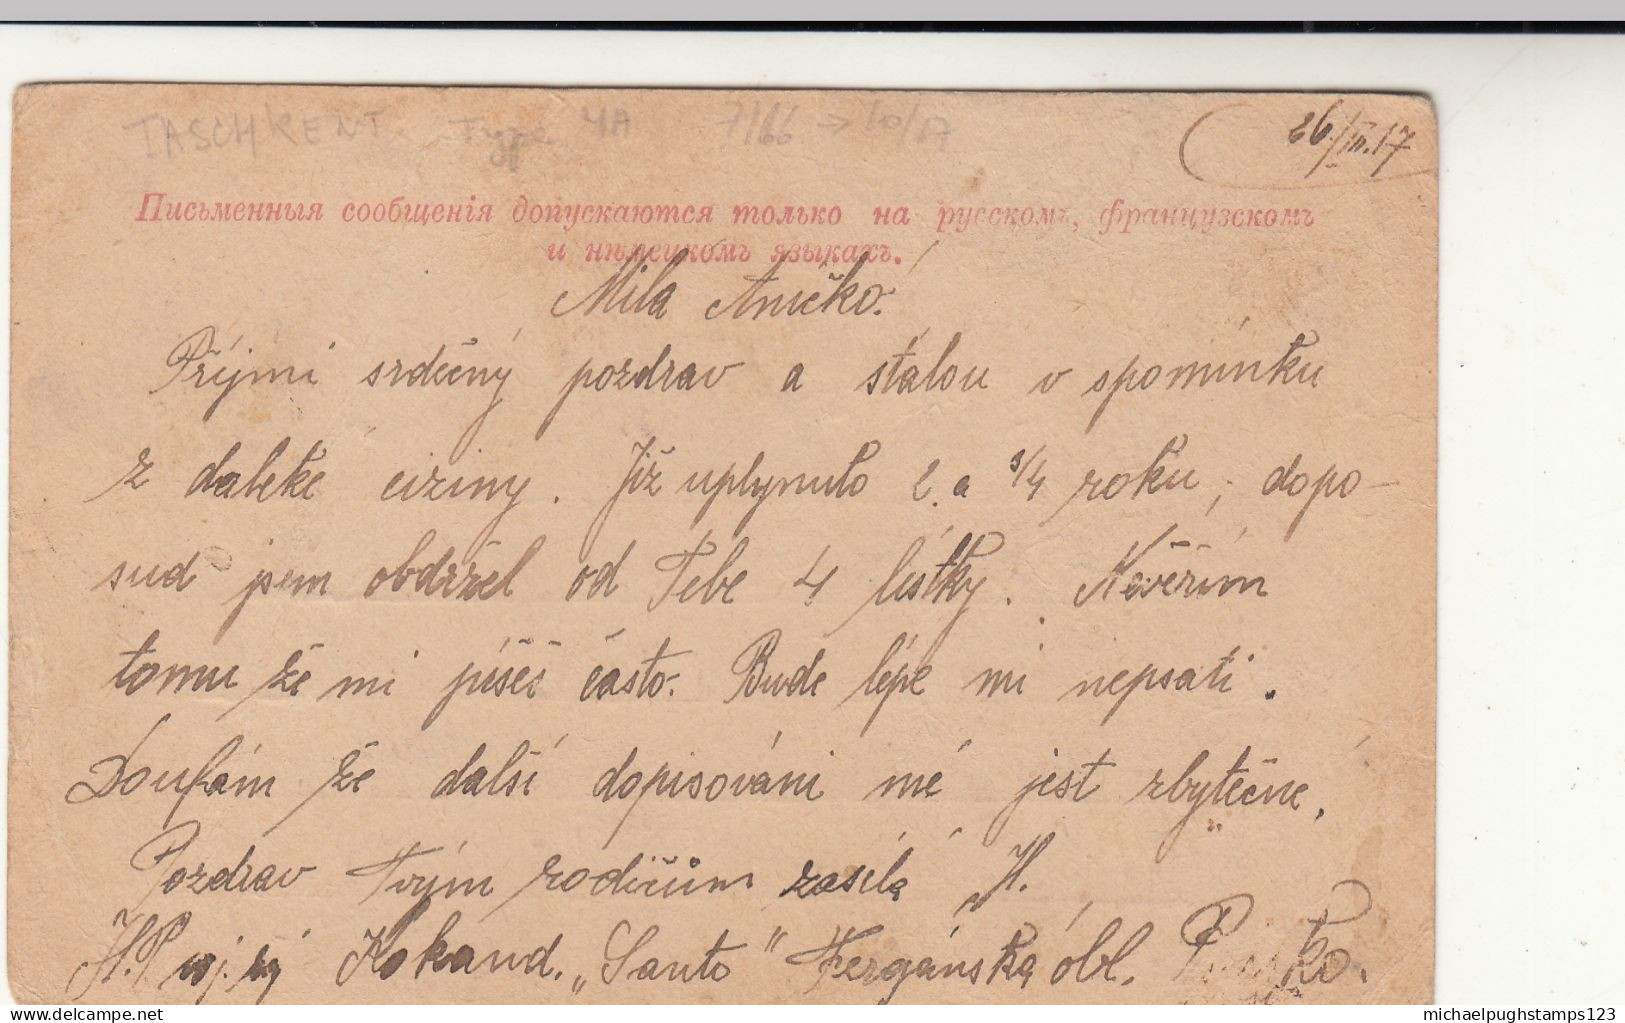 TASCHKENT Type 4A 7/66 → 10/17
26/III.17
Письменныя сообщенія допускаются только на русскомъ, французскомъ
и нѣмецкомъ языкахъ.
Milá Aničko.
Přijmi srdečný pozdrav a stálou v spomínku
z daleké ciziny. Již uplynulo 2 a 3/4 roku, dopo-
sud jsem obdržel od Tebe 4 lístky. Nevěřím
tomu že mi píšeš často. Bude lépe mi nepsati.
Doufám že další dopisování mé jest zbytečné,
Pozdrav Tvým rodičům zasílá H.
Kokand. „Santo" Fergánská obl.
michaelpughstamps123